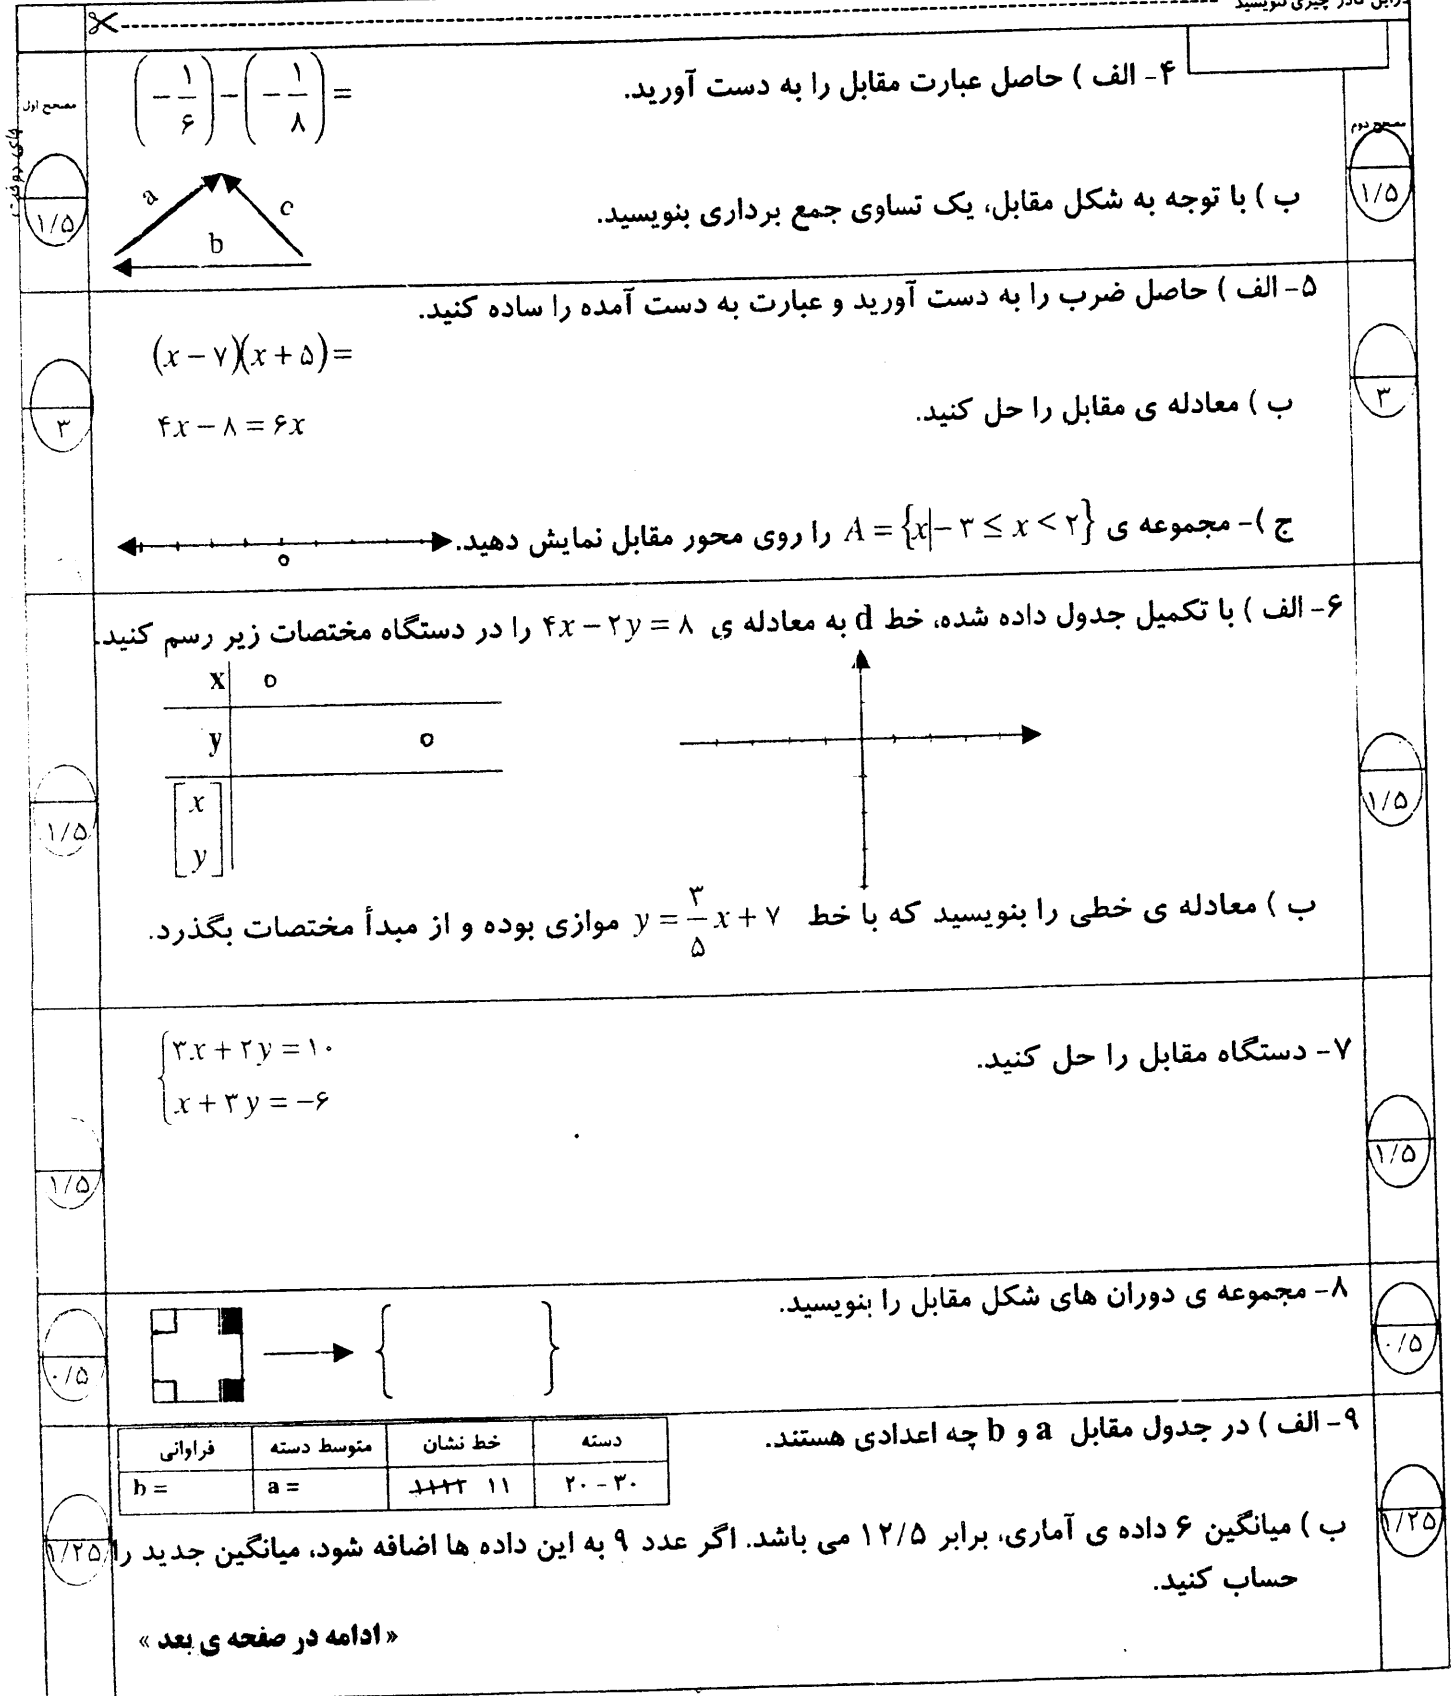 دراین کادر چیزی ننویسید
مصحح اول
مصحح دوم
۴- الف ) حاصل عبارت مقابل را به دست آورید. (-۱/۶)-(-۱/۸)=
۱/۵ ۱/۵
ب ) با توجه به شکل مقابل، یک تساوی جمع برداری بنویسید.
a c
b
۵- الف ) حاصل ضرب را به دست آورید و عبارت به دست آمده را ساده کنید.
(x-۷)(x+۵)=
۳ ۳
ب ) معادله ی مقابل را حل کنید. ۴x-۸=۶x
ج )- مجموعه ی A={x|-۳≤x<۲} را روی محور مقابل نمایش دهید.
o
۶- الف ) با تکمیل جدول داده شده، خط d به معادله ی ۴x-۲y=۸ را در دستگاه مختصات زیر رسم کنید.
x o
y o
[x
y]
۱/۵ ۱/۵
ب ) معادله ی خطی را بنویسید که با خط y=۳/۵x+۷ موازی بوده و از مبدأ مختصات بگذرد.
۷- دستگاه مقابل را حل کنید.
{۳x+۲y=۱۰
x+۳y=-۶
۱/۵ ۱/۵
۸- مجموعه ی دوران های شکل مقابل را بنویسید. { }
۰/۵ ۰/۵
۹- الف ) در جدول مقابل a و b چه اعدادی هستند.
دسته خط نشان متوسط دسته فراوانی
۲۰-۳۰ ۱۱۱۲ ۱۱ a= b=
۱/۲۵ ۱/۲۵
ب ) میانگین ۶ داده ی آماری، برابر ۱۲/۵ می باشد. اگر عدد ۹ به این داده ها اضافه شود، میانگین جدید را
حساب کنید.
« ادامه در صفحه ی بعد »